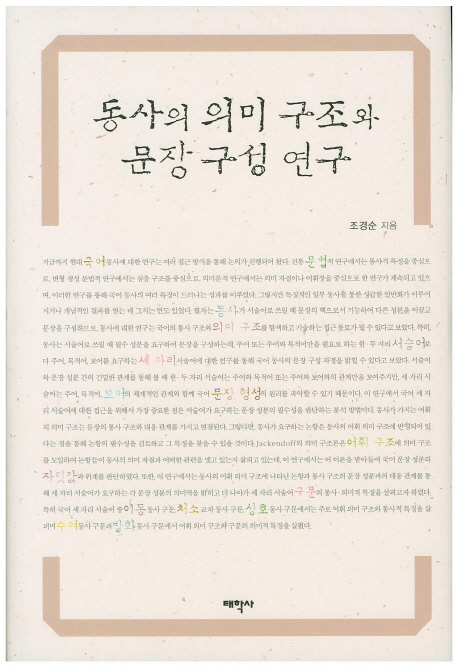 동사의 의미 구조와
문장 구성 연구
조경순 지음
지금까지 현대국어 동사에 대한 연구는 여러 접근 방식을 통해 논의가 진행되어 왔다. 전통문법적 연구에서는 동사적 특징을 중심으
로, 변형 생성 문법적 연구에서는 심층 구조를 중심으로, 의미론적 연구에서는 의미 자질이나 어휘장을 중심으로 한 연구가 계속되고 있으
며, 이러한 연구를 통해 국어 동사의 여러 특징이 드러나는 성과를 이루었다. 그렇지만 특징적인 일부 동사를 통한 성급한 일반화가 이루어
지거나 개념적인 결과를 얻는 데 그치는 면도 있었다. 필자는 동사가 서술어로 쓰일 때 문장의 핵으로서 기능하여 다른 성분을 이끌고
문장을 구성하므로, 동사에 대한 연구는 국어의 통사 구조와 의미 구조를 탐색하고 기술하는 접근 통로가 될 수 있다고 보았다. 특히,
동사는 서술어로 쓰일 때 필수 성분을 요구하여 문장을 구성하는데, 주어 또는 주어와 목적어만을 필요로 하는 한·두 자리 서술어보
다 주어, 목적어, 보어를 요구하는 세 자리 서술어에 대한 연구를 통해 국어 동사의 문장 구성 과정을 밝힐 수 있다고 보았다. 서술어
와 문장 성분 간의 긴밀한 관계를 통해 볼 때 한·두 자리 서술어는 주어와 목적어 또는 주어와 보어와의 관계만을 보여주지만, 세 자리 서
술어는 주어, 목적어, 보어의 체계적인 관계와 함께 국어 문장 형성의 원리를 파악할 수 있기 때문이다. 이 연구에서 국어 세 자
리 서술어에 대한 접근을 위해서 가장 중요한 점은 서술어가 요구하는 문장 성분의 필수성을 판단하는 분석 방법이다. 동사가 가지는 어휘
의미 구조는 문장의 통사 구조와 대응 관계를 가지고 연결된다. 그렇다면, 동사가 요구하는 논항은 동사의 어휘 의미 구조에 반영되어 있다
는 점을 통해 논항의 필수성을 검토하고 그 특징을 찾을 수 있을 것이다. Jackendoff의 의미 구조론은 어휘 구조에 의미 구조
를 도입하여 논항들이 동사의 의미 자질과 어떠한 관련을 맺고 있는지 살피고 있는데, 이 연구에서는 이 이론을 받아들여 국어 문장 성분의
자리값과 위계를 판단하였다. 또한, 이 연구에서는 동사의 어휘 의미 구조에 나타난 논항과 통사 구조의 문장 성분과의 대응 관계를 통
해 세 자리 서술어가 요구하는 각 문장 성분의 의미역을 밝히고 더 나아가 세 자리 서술어 구문의 통사·의미적 특징을 살펴보고자 하였다.
특히 국어 세 자리 서술어 중 이동 동사 구문, 처소 교차 동사 구문, 상호 동사 구문에서는 주로 어휘 의미 구조와 통사적 특징을 살
피며 수여 동사 구문과 발화 동사 구문에서 어휘 의미 구조와 구문의 의미적 특징을 살핀다.
태학사